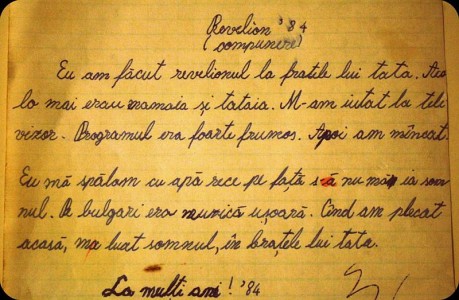 Revelion '84
(compunere)
Eu am făcut revelionul la fratele lui tata. Aco
lo mai erau mamaia și tataia. M-am uitat la tele
vizor. Programul era foarte frumos. Apoi am mîncat.
Eu mă spălam cu apă rece pe față să nu mă ia som
nul. La bulgari era muzică ușoară. Cînd am plecat
acasă, ma luat somnul, în brațele lui tata.
La multi ani! '84